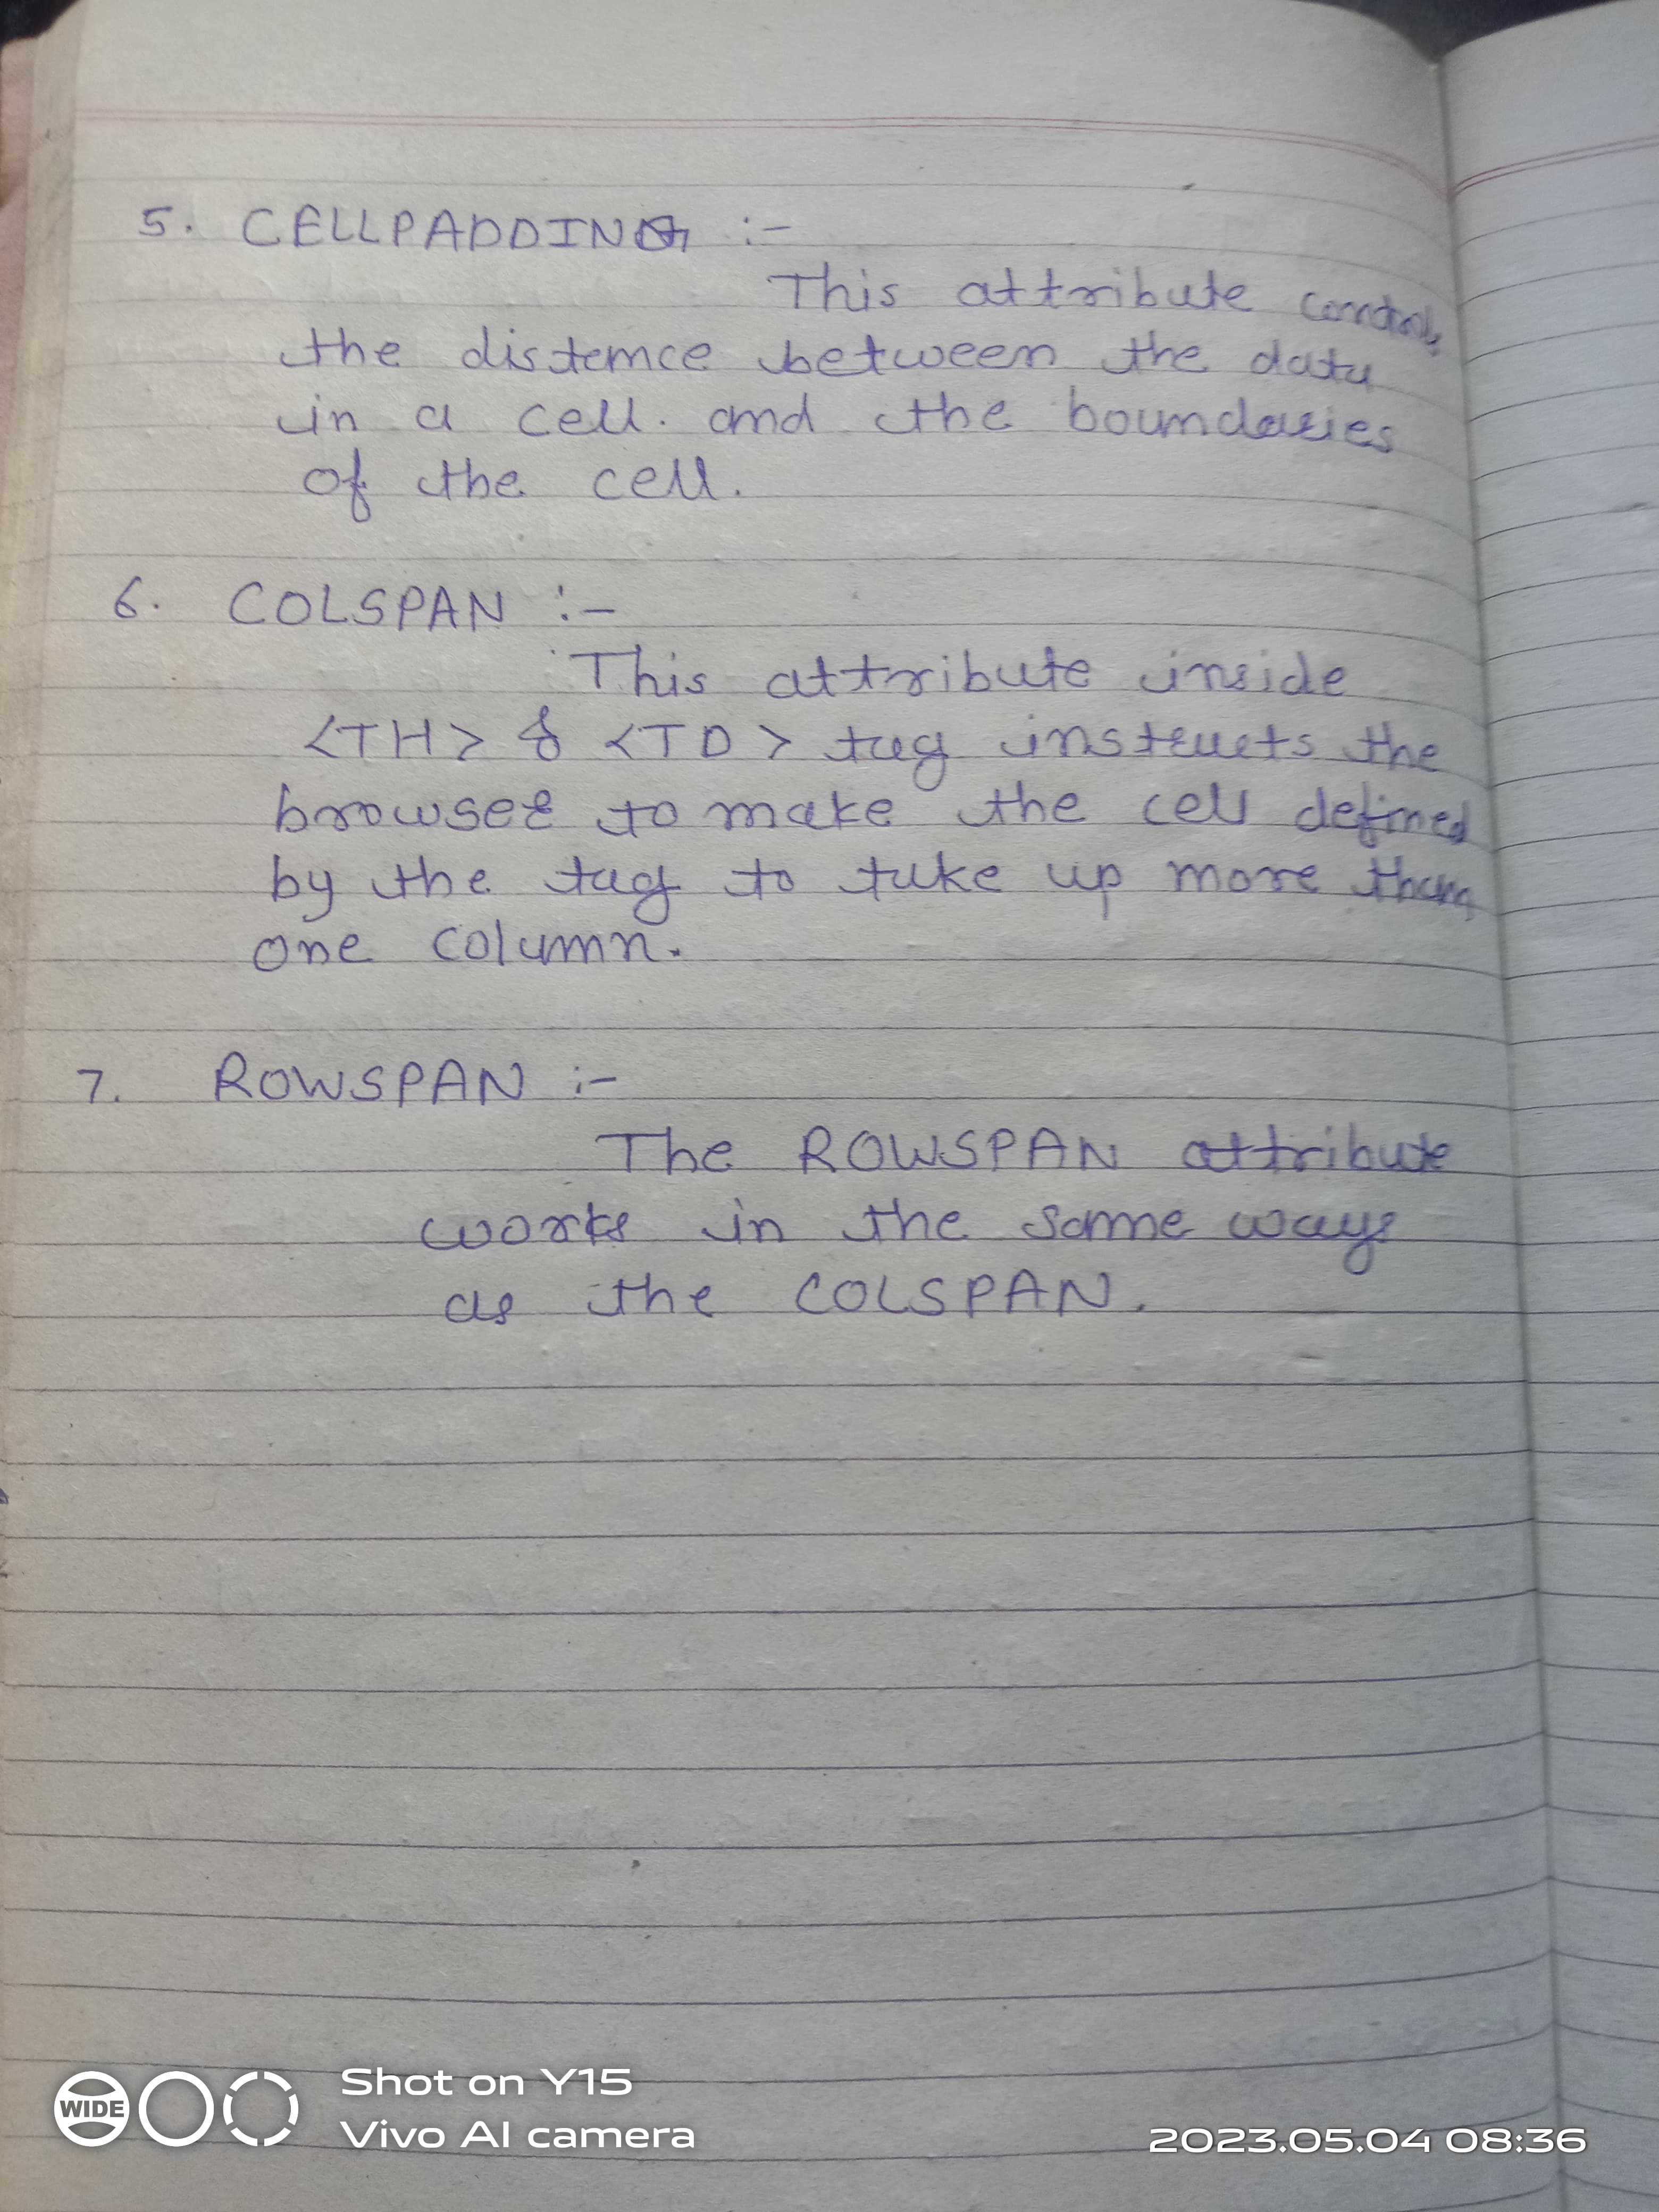 5. CELLPADDING :-
This attribute controls
the distance between the data
in a cell. and the boundaries
of the cell.
6. COLSPAN :-
This attribute inside
<TH> & <TD> tag instructs the
browser to make the cell defined
by the tag to take up more than
one column.
7. ROWSPAN :-
The ROWSPAN attribute
works in the same ways
as the COLSPAN.
WIDE
Shot on Y15
Vivo AI camera
2023.05.04 08:36